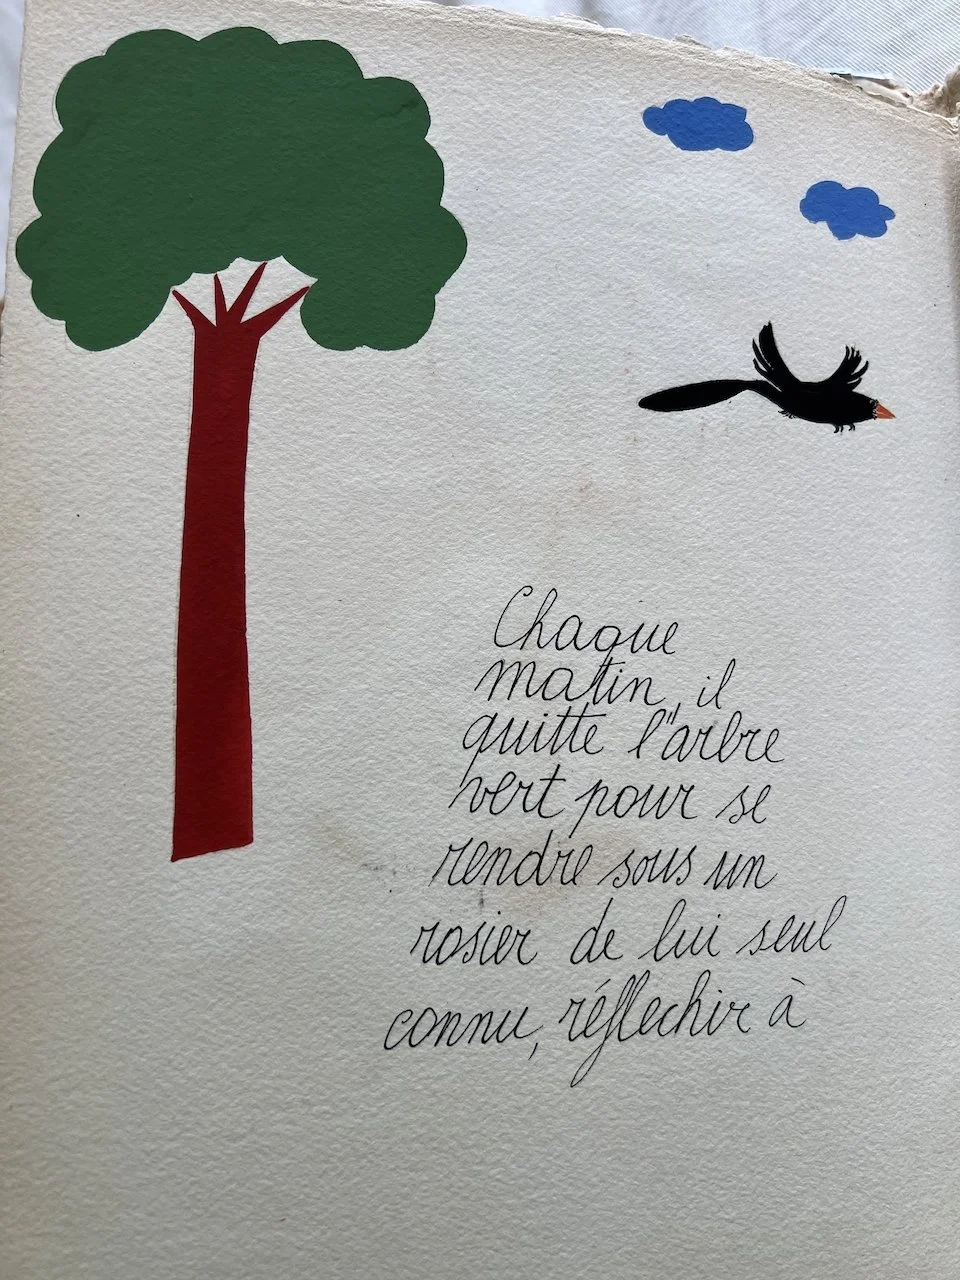 Chaque
matin, il
quitte l'arbre
vert pour se
rendre sous un
rosier de lui seul
connu, réflechir à